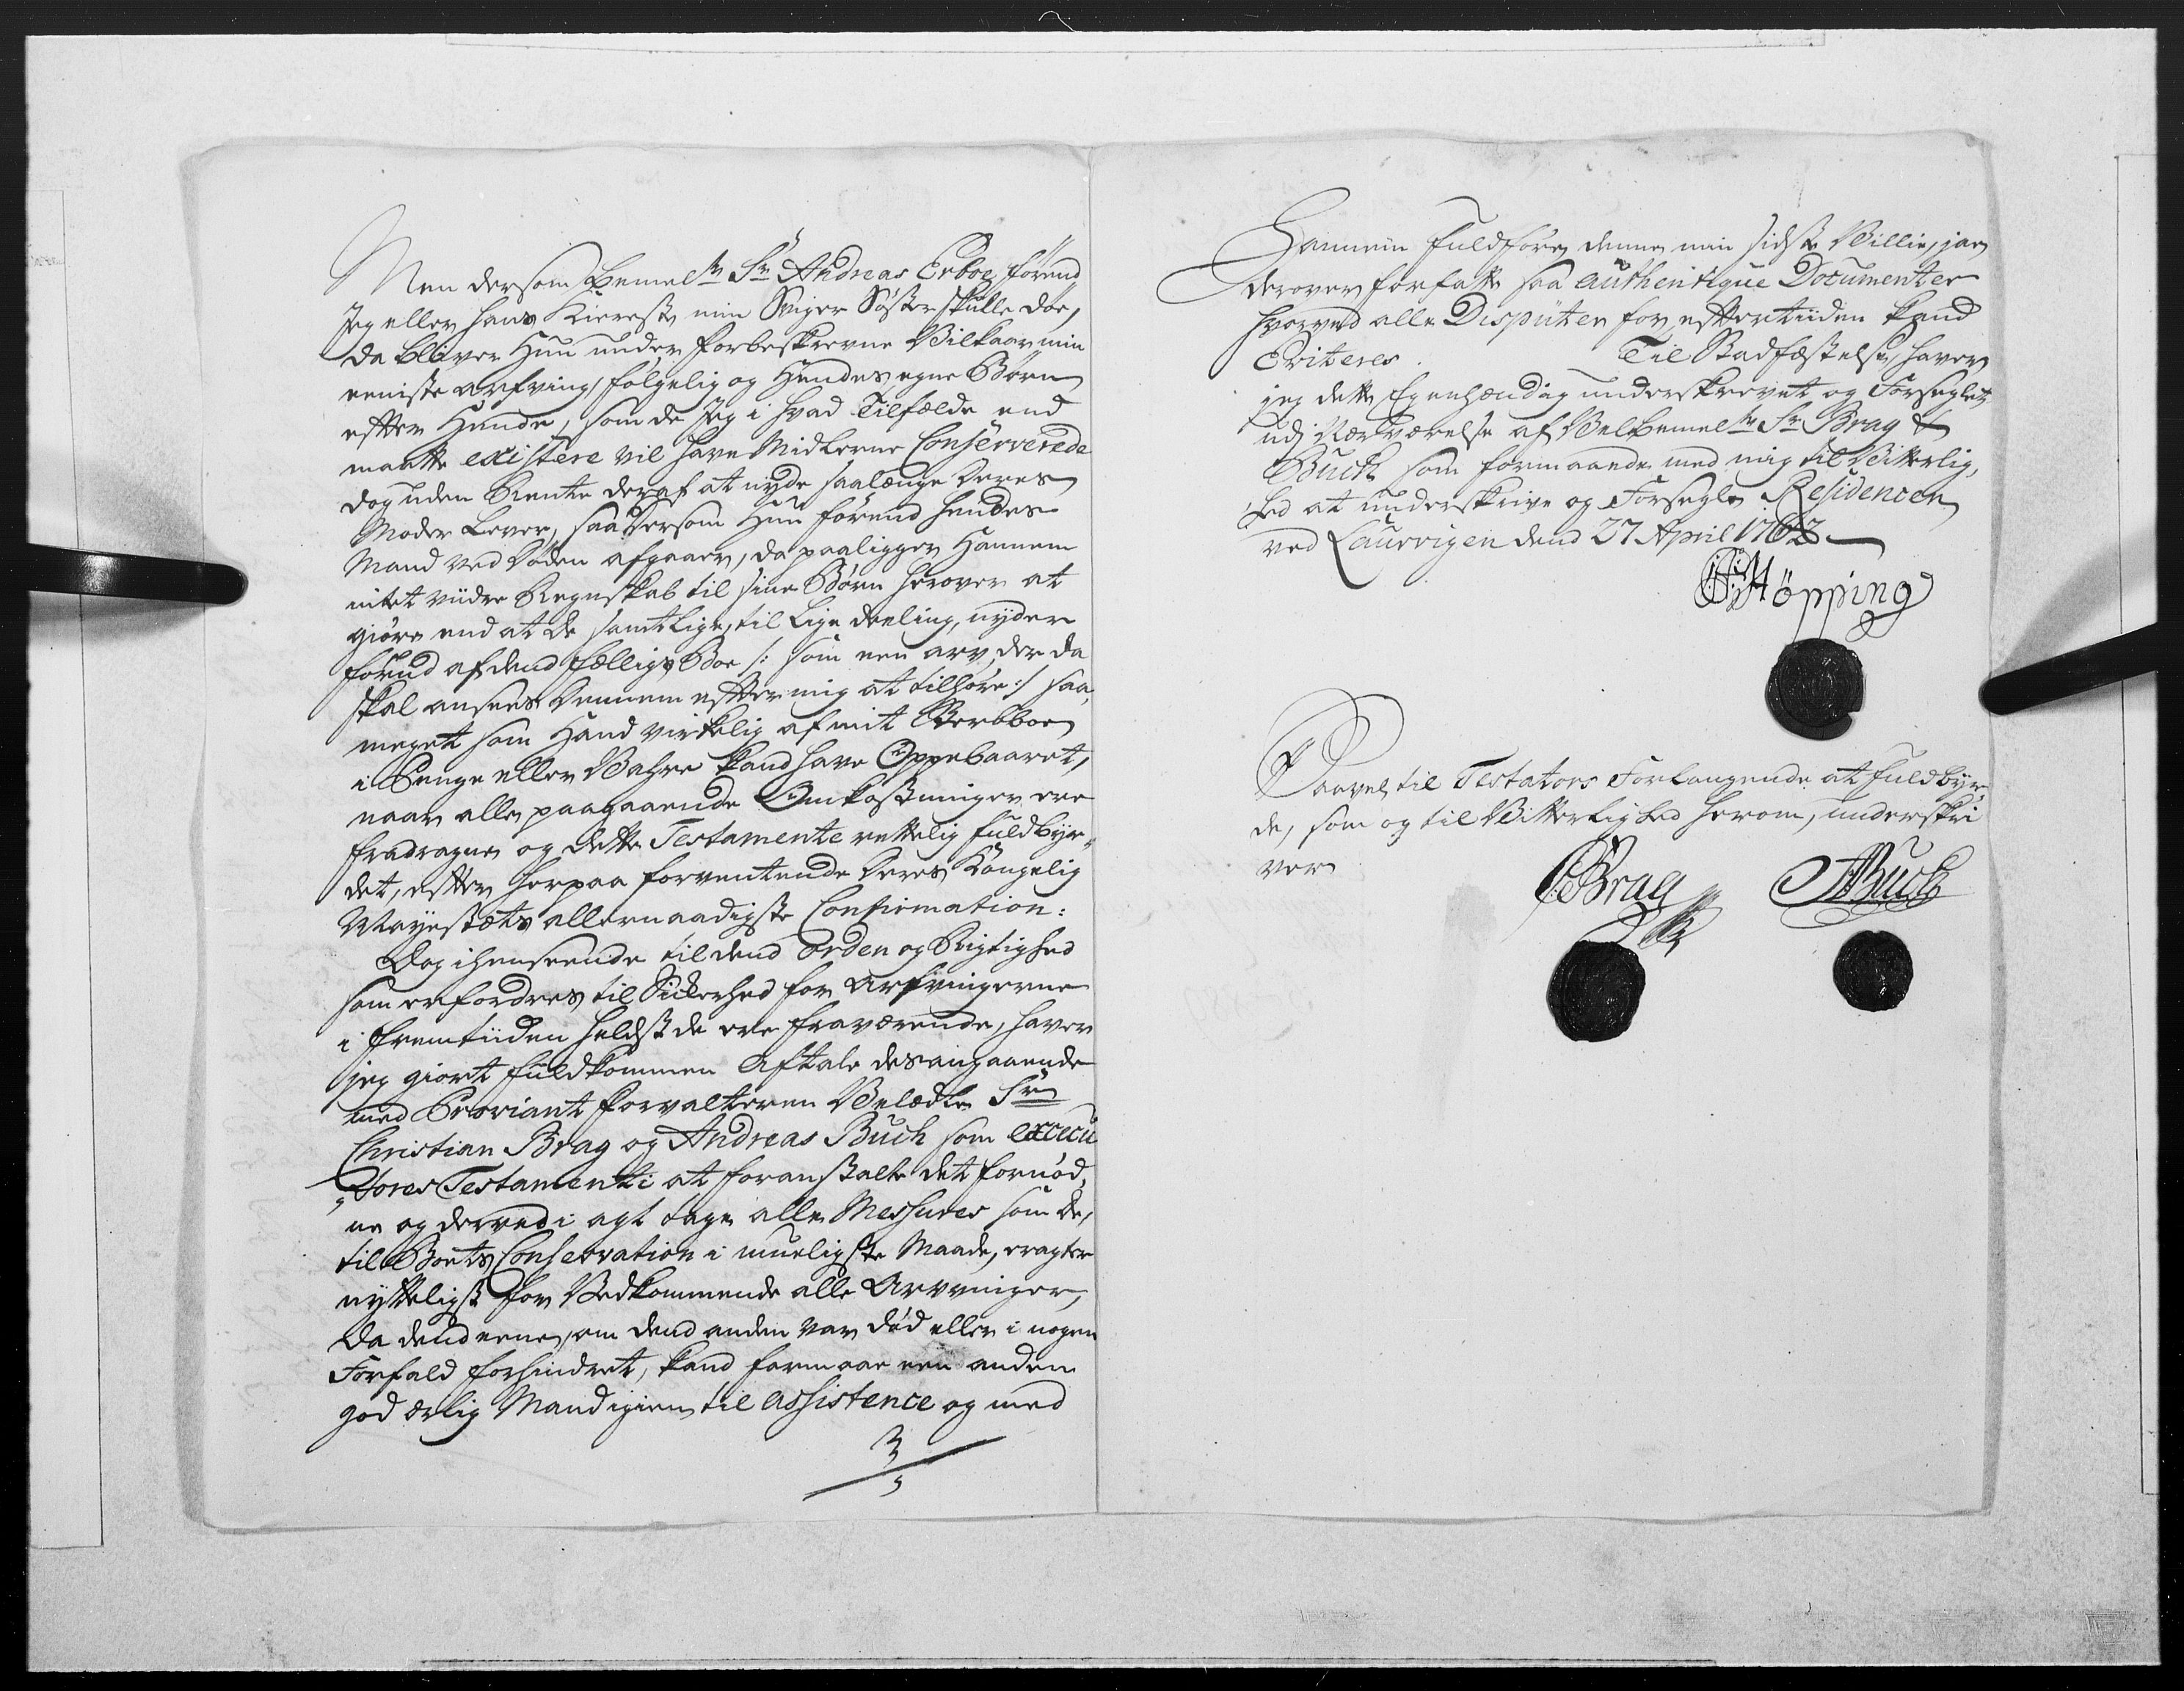 Men dersom bemelte Sr Andreas Erboe förend
Jeg eller hans Kiereste min Sviger Söster skulle döe,
da bliver Hun under forbeskrevne Vilkaar min
eeniste arfving, fölgelig og Hendes egne Börn
efter Hende, som de Jeg i hvad Tilfælde end
maatte existere vil have Midlerne Conserverede
dog uden Rente deraf at nyde saalænge deres
Moder Lever, saa dersom Hun förend hendes
Mand ved Döden afgaaer, da paaligger Hannem
intet viidre Regnskab til sine Börn herover at
giöre end at de samtlige, til lige deeling, nyder
forud af dend fælligs Boe /: som een arv, der da
skal ansees Dennem efter mig at tilhöre :/ saa
meget som Hand virkelig af mit Sterbboe
i Penge eller Vahre kand have Oppebaaret,
naar alle paagaaende Omkostninger ere
fradragne og dette Testamente rettelig fuldbyr-
det, efter herpaa forventende Deres Kongelig
Mayestæts allernaadigste Confirmation:
Dog i henseende til dend Orden og Rigtighed
som erfordres til Sickerhed for Arfvingerne
i fremtiiden heldst de ere fraværende, haver
jeg giort fuldkommen Aftale desangaaende
med Proviant forvalteren Velædle Sr
Christian Brag og Andreas Buch som execu
„tores Testamenti at foranstalte det fornöd,
ne og derved i agt tage alle Messures som de,
til Boets Conservation i mueligste Maade, eragter
nytteligst for Vedkommende alle Arvinger,
da dend eene, om dend anden var död eller i nogen
Forfald forhindret, kand formaae een anden
god ærlig Mand igien til assistence og med
Hannem fuldföre denne min sidste Villie, jae
derover forfatte saa authentique Documenter
hvorved alle Disputer for eftertiiden kand
Eviteres. Til Stadfæstelse haver
jeg dette Egenhændig underskrevet og Forseglet
udj Nærværelse af Velbemelte Sr Brag &
Buch som formaaede med mig til Vitterlig,
hed at underskrive og Forsegle Residencen
ved Laurvigen dend 27 April 1762
Höpping
Saavel til Testators Forlangende at fuldbyr,
de, som og til Vitterlighed herom, underskri
ver
CBrag ABuch